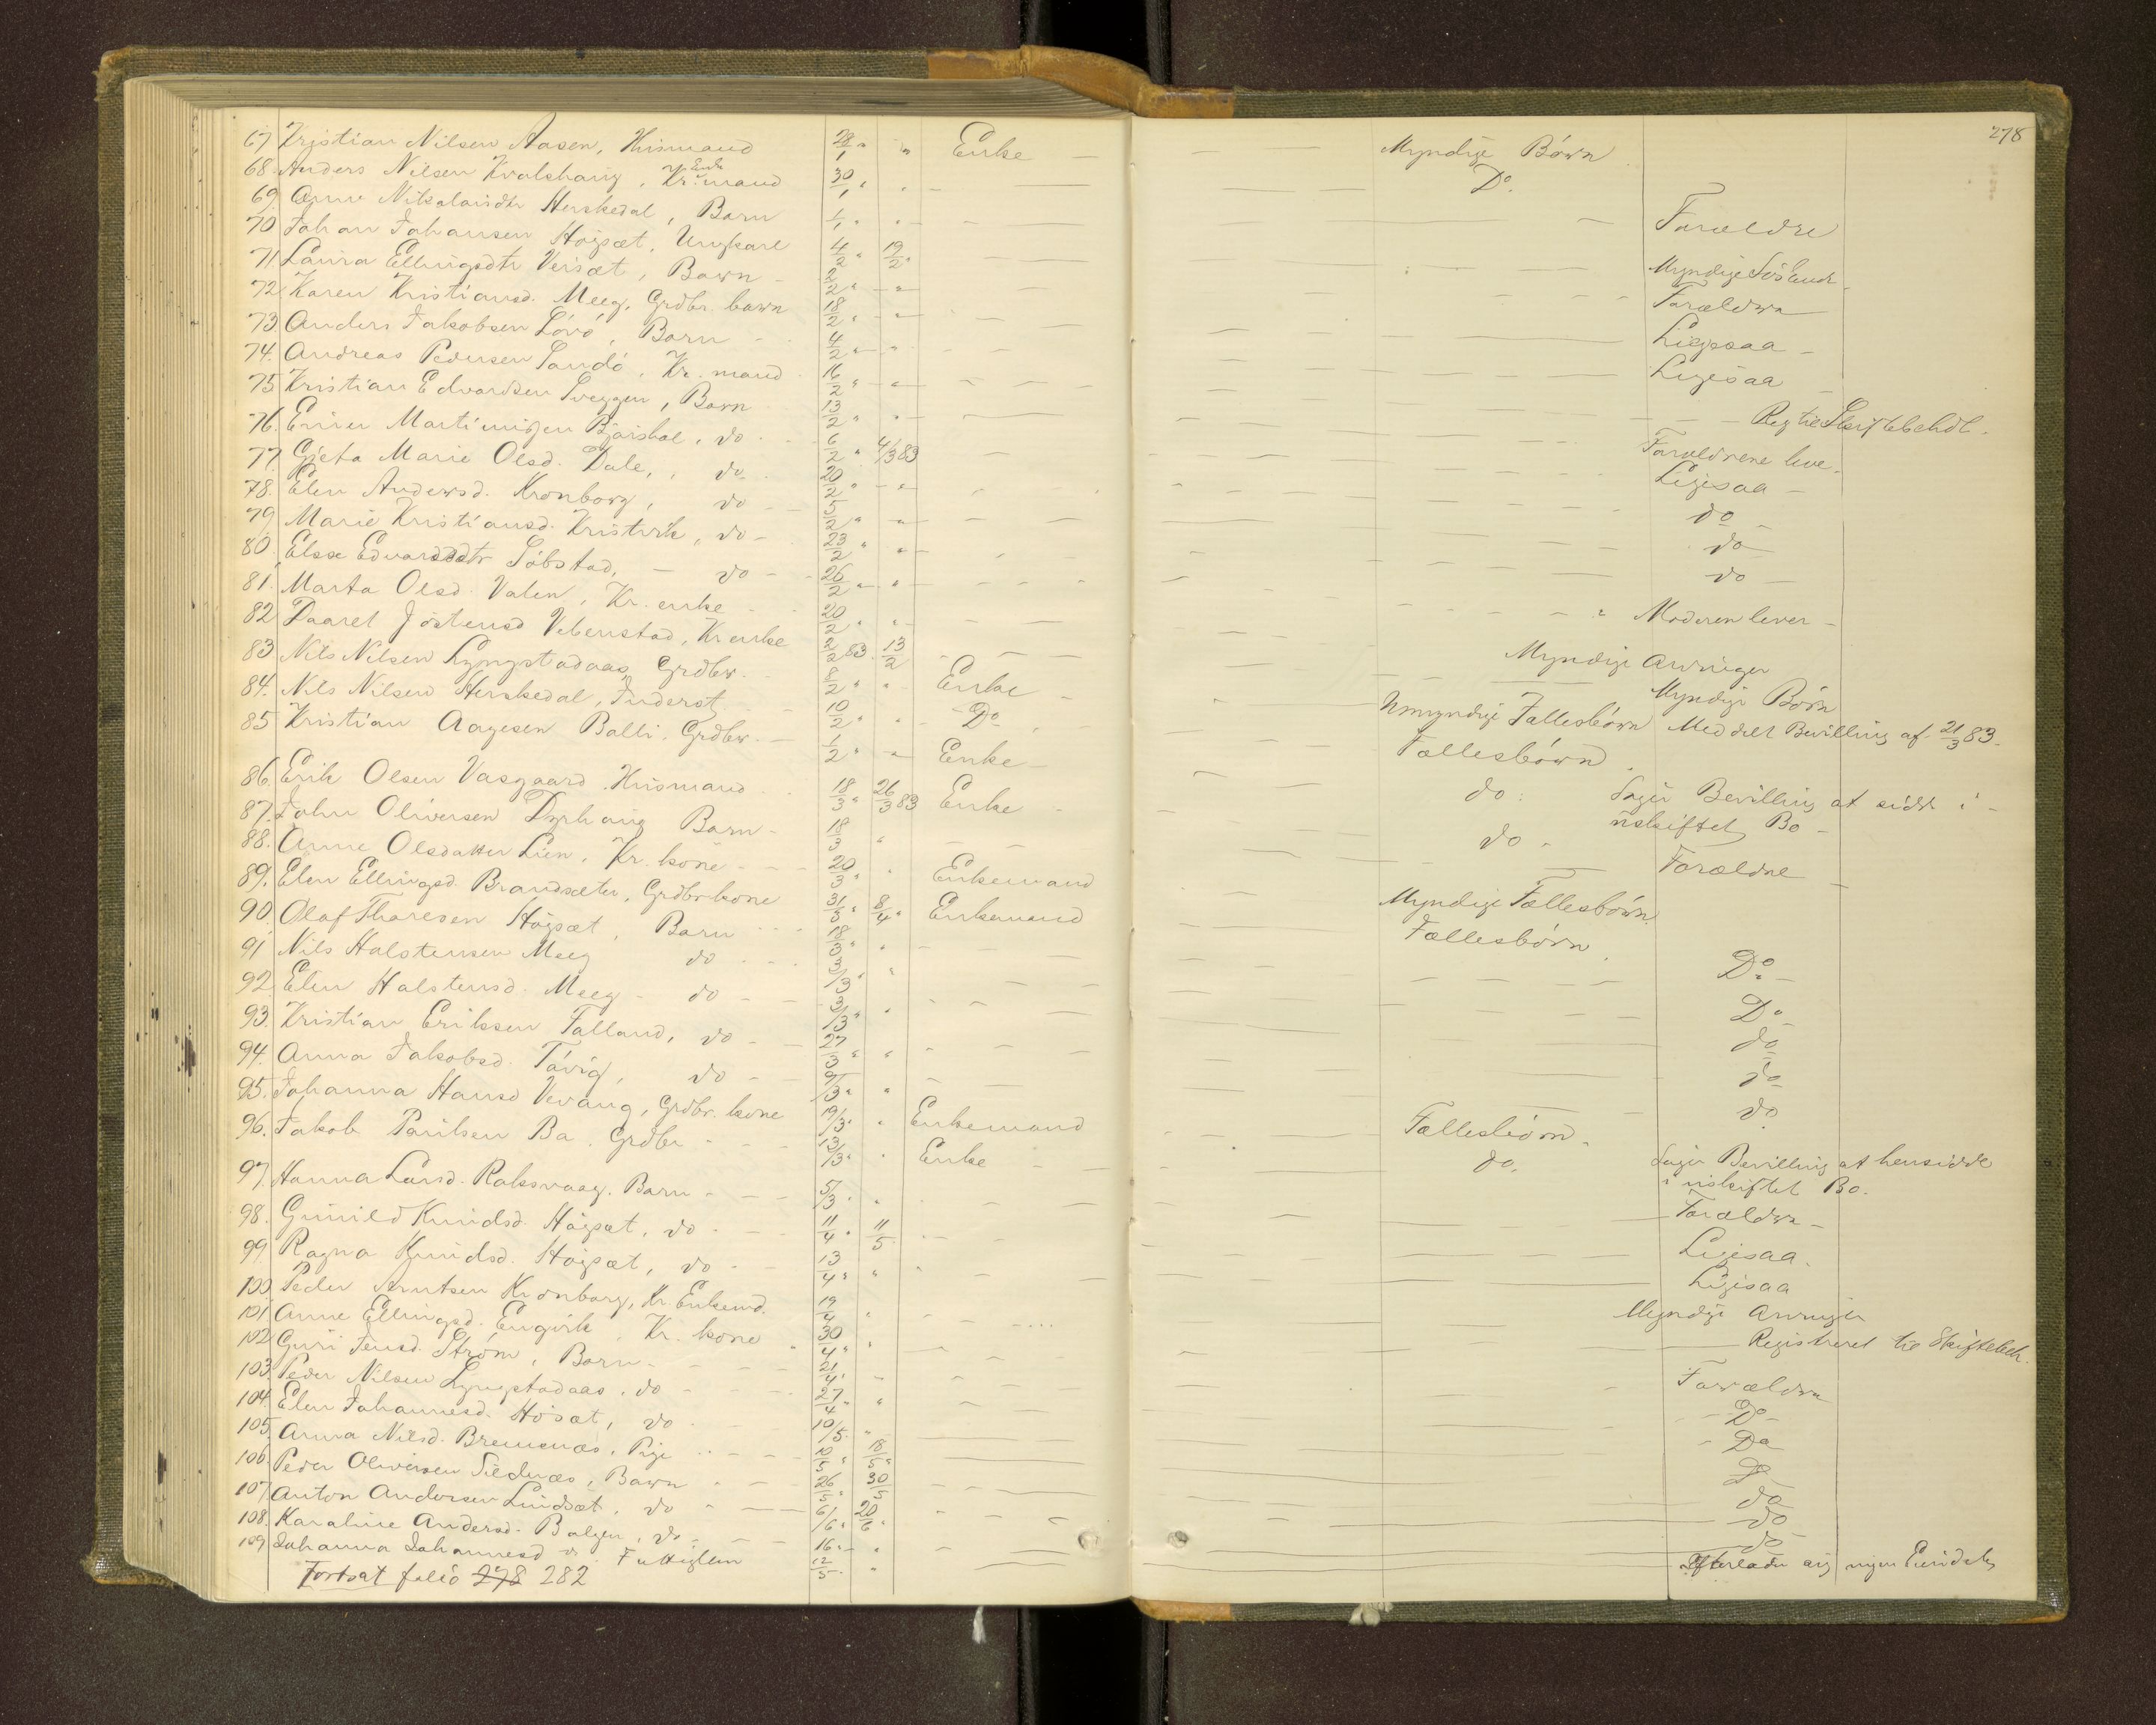 278
67 Kristian Nilsen Aasen, Husmand 28/1 " " Enke — Myndige Börn
68. Anders Nilsen Kvalshaug, Kr. Enkemand 30/1 " " — Do.
69. Anne Nikolaisdtr Herskedal, Barn 1/1 " " — Forældre
70 Johan Johansen Höigsæt, Ungkarl 4/2 " 19/2 " — Myndige Sösk
71. Laura Ellingsdtr Veisæt, Barn 2/2 " " — Forældre
72 Karen Kristiansd. Meeg, Grdbr. barn 18/2 " " — Ligesaa
73 Anders Jakobsen Lövö, Barn 4/2 " " — Ligesaa
74. Andreas Pedersen Sandö, Kr. mand 16/2 " " — Reg til Skiftebehdl.
75 Kristian Edvardsen Sveggen, Barn 13/2 " " — Forældrene leve.
76. Martinusen do. 6/2 " 4/3 83 — Ligesaa
77. Gjeta Marie Olsd. Dale, do. 20/2 " " — do
78. Elen Andersd. Kronborg, do 5/2 " " — do
79 Marie Kristiansd. Kristvik, do 23/2 " " — do
80. Else Edvardsdtr Söbstad, — do 26/2 " "
81. Marta Olsd. Valen, Kr. enke 20/2 " " Moderen lever —
82 Jöstensd Vebenstad, Kr enke 2/2 83. 13/2 Myndige Arvinger
83 Nils Nilsen Lyngstadaas, Grdbr. 8/2 " " Enke — Myndige Börn
84. Nils Nilsen Herskedal, Inderst 10/2 " " Do — Umyndige Fællesbörn Meddelt Bevilling af 21/3 83.
85 Kristian Aagesen Balli, Grdbr. 1/2 " " Enke — Fællesbörn
86. Erik Olsen Vasgaard Husmand 18/3 " 26/3 83 Enke — do. Söger Bevilling at sidde i
uskiftet Bo —
do —
87. John Oliversen Dyrhaug Barn — 18/3 " Forældre
88. Anne Olsdatter Lien, Kr. kone 20/3 " " Enkemand Myndige Fællesbörn.
89. Elen Ellingsd. Brandsæter, Grdbr. kone 31/3 " 8/4 " Enkemand Fællesbörn
90. Olaf Tharesen Höigsæt, Barn 18/3 " " — Do
91 Nils Halstensen Meeg do 3/3 " " — Do
92. Elen Halstensd. Meeg — do 3/3 " " — do
93. Kristian Eriksen Talland, do 27/3 " " — do
94. Anna Jakobsd. Tövig, do 9/3 " " — do
95. Johanna Hansd Vevang, Grdbr. kone 19/3 " " Enkemand Fællesbörn.
96. Jakob Paulsen Ba. Grdbr 13/3 " " Enke — do. Söger Bevilling at hensidde
i uskiftet Bo.
97. Hanna Larsd. Roksvaag. Barn 5/3 " " — Forældre
98. Gunild Knudsd. Höigsæt, do 11/4 " 11/5 — Ligesaa.
99. Ragna Knudsd. Höigsæt, do 13/4 " " — Ligesaa
100. Peder Arntsen Kronborg, Kr. Enkemd. 19/4 " Myndige Arvinger
101. Anne Ellingsd. Engvik, Kr. kone 30/4 " " Registreret til Skiftebeh.
102. Guri Jensd. Ström, Barn 21/4 " Forældre
103. Peder Nilsen Lyngstadaas. do 27/4 " " — Do —
104. Elen Johannesd. Hösæt, do 10/5. " Do
105. Anna Nilsd. Bremsnæs. Pige 10/5 " 18/5 " Do
106. Peder Oliversen Sildnæs, Barn 26/5 " 30/5 do
107. Anton Andersen Lindsæt, do 6/6 " 20/6 " do
108. Karoline Andersd. Bolgen, do 16 " " do
109 Johanna Johannesd Fattiglem 12/5. " Efterlader sig ingen Eiendele
Fortsat folio 278 282